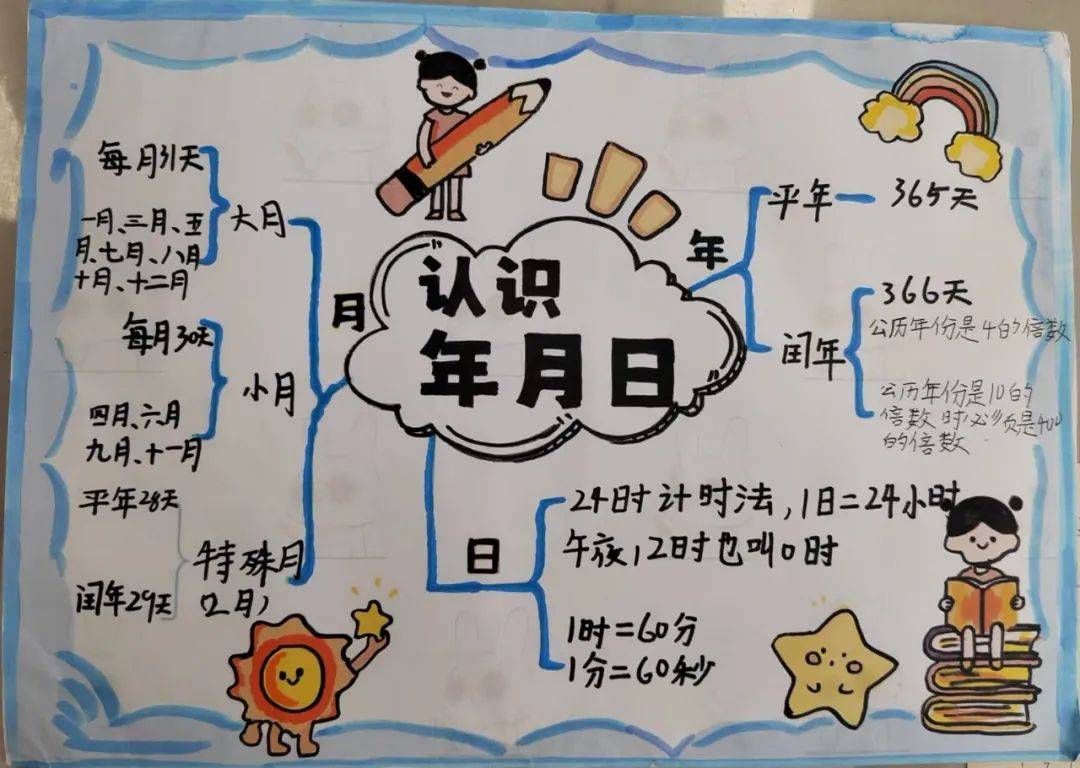 认识
年月日
月
大月
每月31天
一月、三月、五
月、七月、八月
十月、十二月
小月
每月30天
四月、六月
九月、十一月
特殊月
(2月)
平年28天
闰年29天
年
平年
365天
闰年
366天
公历年份是4的倍数
公历年份是10的
倍数时必须是400
的倍数
日
24时计时法,1日=24小时
午夜12时也叫0时
1时=60分
1分=60秒